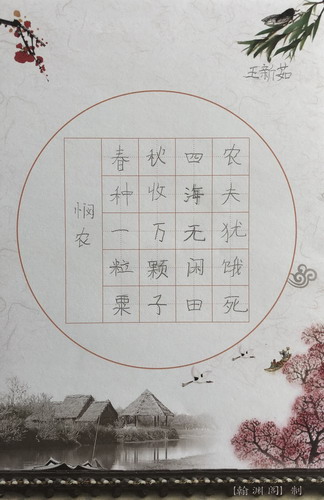 王新茹
悯农
春种一粒粟
秋收万颗子
四海无闲田
农夫犹饿死
【翰渊阁】制